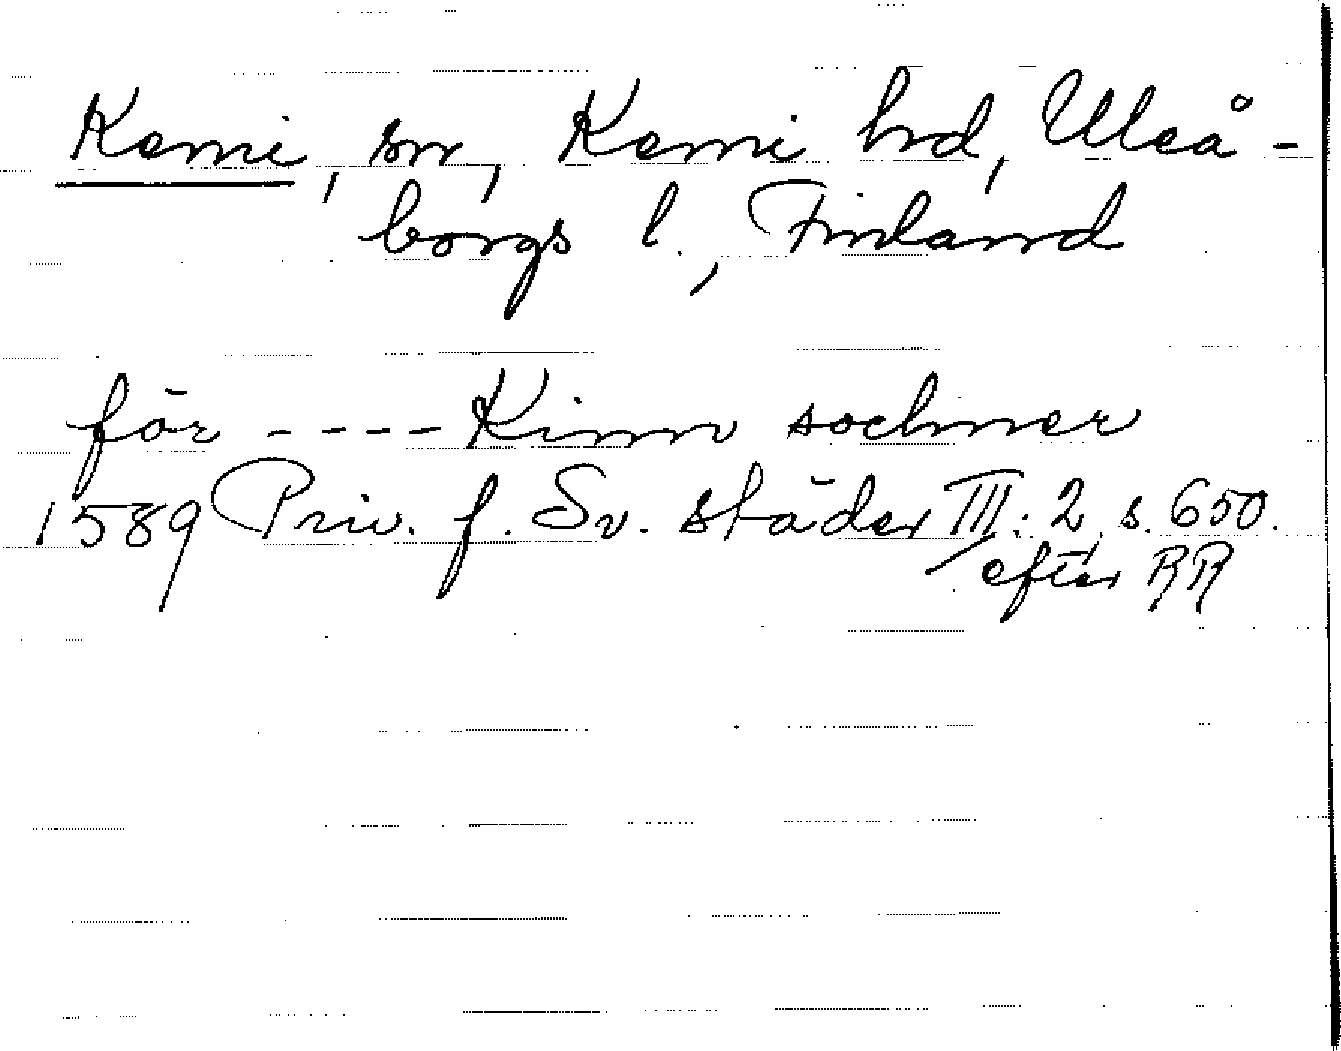 Kemi, sn, Kemi hd, Uleå-
borgs l., Finland
för ---- Kimi sochner
1589 Priv. f. Sv. städer III:2, s. 650.
efter RR